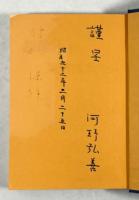 謹呈
河野弘善
昭和五十三年三月二十五日